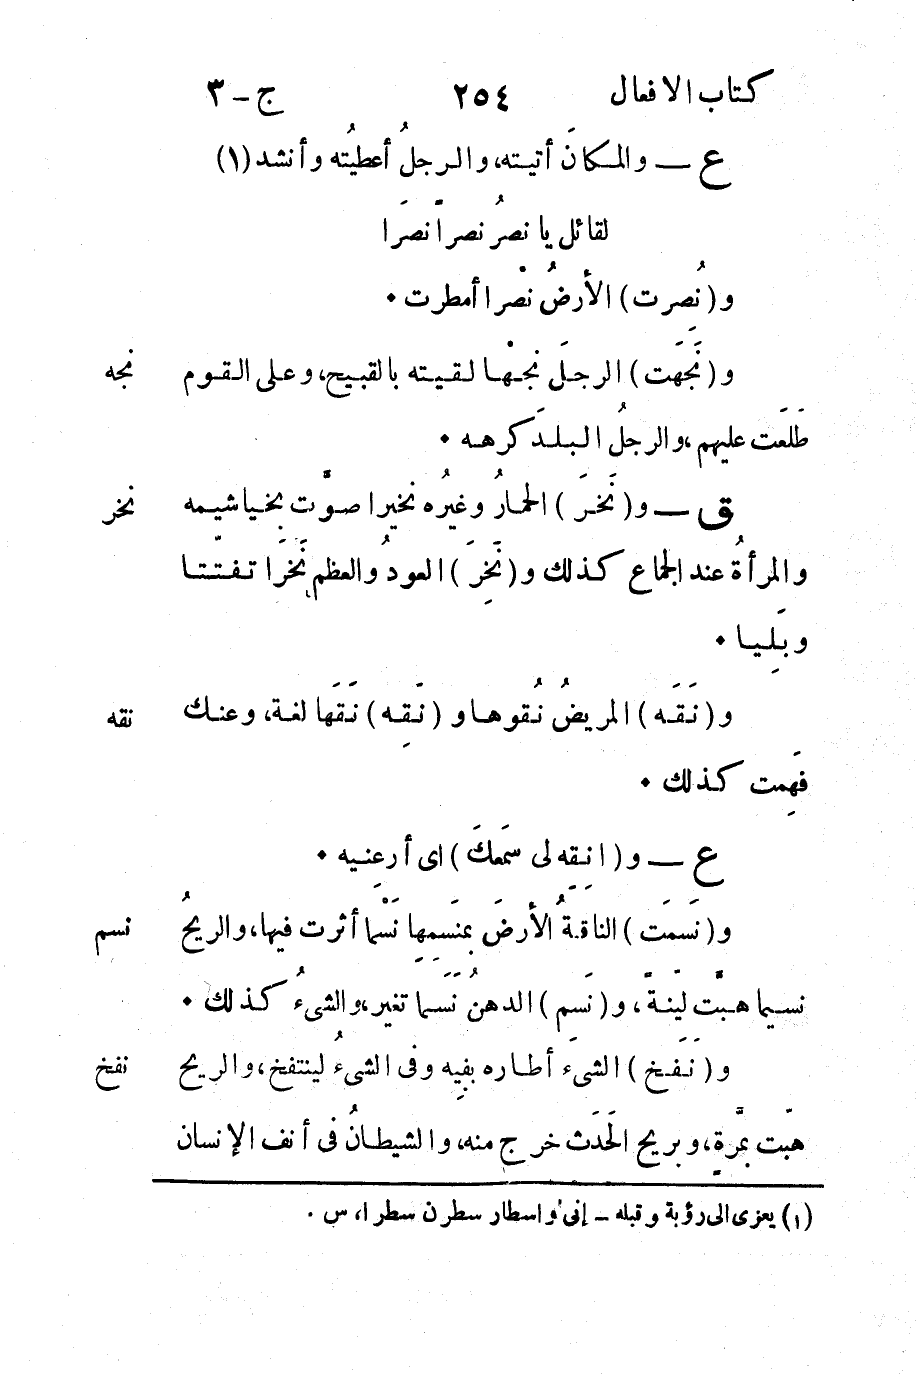 كتاب الافعال ٢٥٤ ج - ٣
ع — والمكانَ أتيته، والرجلُ أعطيتُه وأنشد (١)
لقائل يا نصرُ نصراً نصرَا
و (نُصرت) الأرضُ نصْرا أمطرت ٠
و (نَجَهت) الرجلَ نجْها لقيته بالقبيح، وعلى القوم نجه
طَلَعَت عليهم، والرجلُ البلدَ كرهه ٠
ق — و (نَخَرَ) الحمارُ وغيرُه نخيرا صوّت بخياشيمه نخر
والمرأةُ عند الجماع كذلك و (نَخِرَ) العودُ والعظم نَخَرًا تفتّتا
وبَلِيا ٠
و (نَقَه) المريضُ نُقوها و (نَقِه) نَقَها لغة، وعنك نقه
فَهِمت كذلك ٠
ع — و (انقِه لِى سَمَعكَ) اى أرعِنيه ٠
و (نَسَمَت) الناقةُ الأرضَ بمَنسِمِها نَسْما أثرت فيها، والريحُ نسم
نسيما هبّت ليّنةً، و (نَسِم) الدهنُ نَسَما تغير، والشىءُ كذلك ٠
و (نَفَخ) الشىء أطاره بفِيه وفى الشىءُ لينتفخ، والريح نفخ
هبّت بمَرّةٍ، وبريح الحَدَث خرج منه، والشيطانُ فى أنف الإنسان
(١) يعزى الى رؤبة وقبله - إنى واسطار سطرن سطرا، س ٠